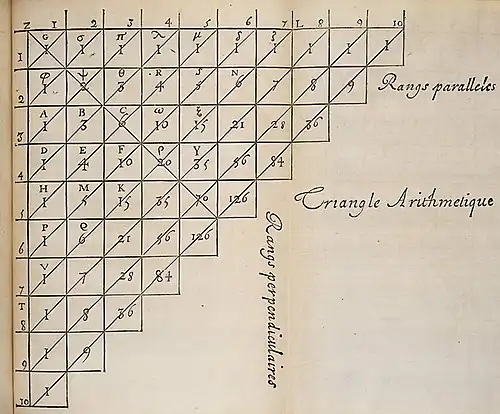 Z 1 2 3 4 5 6 7 L 8 9 10
1 G σ π λ μ δ ζ
1 1 1 1 1 1 1 1 1 1
φ ψ θ R S N
2 1 2 3 4 5 6 7 8 9
Rangs paralleles
A B C ω ξ
3 1 3 6 10 15 21 28 36
D E F ρ Y
4 1 4 10 20 35 56 84
H M K
5 1 5 15 35 70 126
Triangle Arithmetique
P Q
6 1 6 21 56 126
V
7 1 7 28 84
Rangs perpendiculaires
T
8 1 8 36
9 1 9
10 1